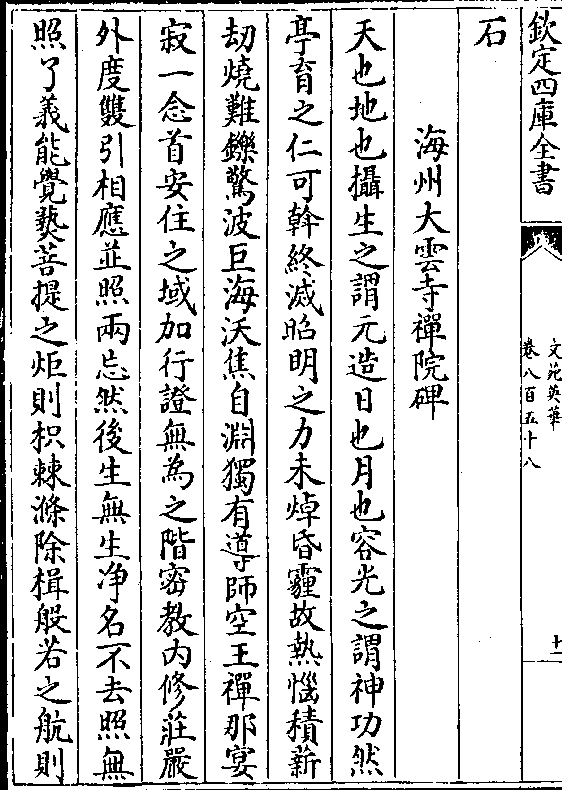 欽定四庫全書
文苑英華
卷八百五十八
十二
石
海州大雲寺禪院碑
天也地也攝生之謂元造日也月也容光之謂神功然
亭育之仁可斡終滅昭明之力未焯昏霾故熱惱積薪
劫燒難鑠驚波巨海沃焦自淵獨有導師空王禪那宴
寂一念首安住之域加行證無為之階密教内修莊嚴
外度雙引相應並照兩忘然後生無生净名不去照無
照了義能覺爇菩提之炬則枳棘滌除楫般若之航則